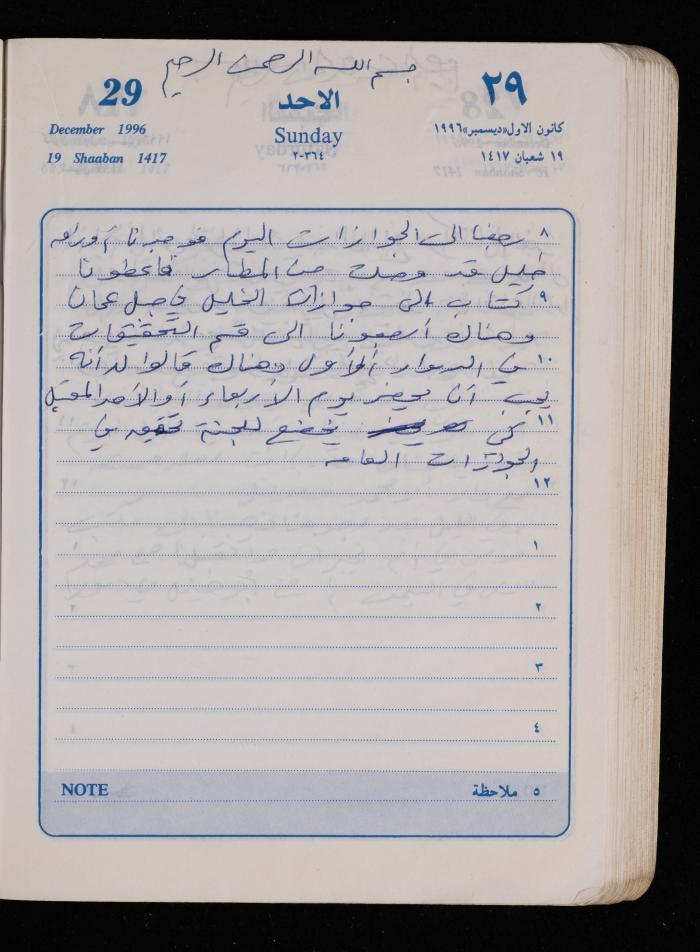 بسم الله الرحمن الرحيم
29 الاحد ٢٩
December 1996 Sunday كانون الاول «ديسمبر» ١٩٩٦
19 Shaaban 1417 ٢-٣٦٤ ١٩ شعبان ١٤١٧
٨ رجعنا الى الجوازات اليوم فوجدنا أوراق
خليل قد وصلت من المطار فأعطونا
٩ كتاب إلى جوازات الخليل في جبل عمان
وهناك الى قسم التحقيقات
١٠ في الدوار الأول وهناك قالوا له أنه
يجب أن يحضر يوم الأربعاء أو الأحد المقبل
١١ كي يخضع للجنة تحقيق في
الجوازات العامه
١٢
١
٢
٣
٤
NOTE ٥ ملاحظة